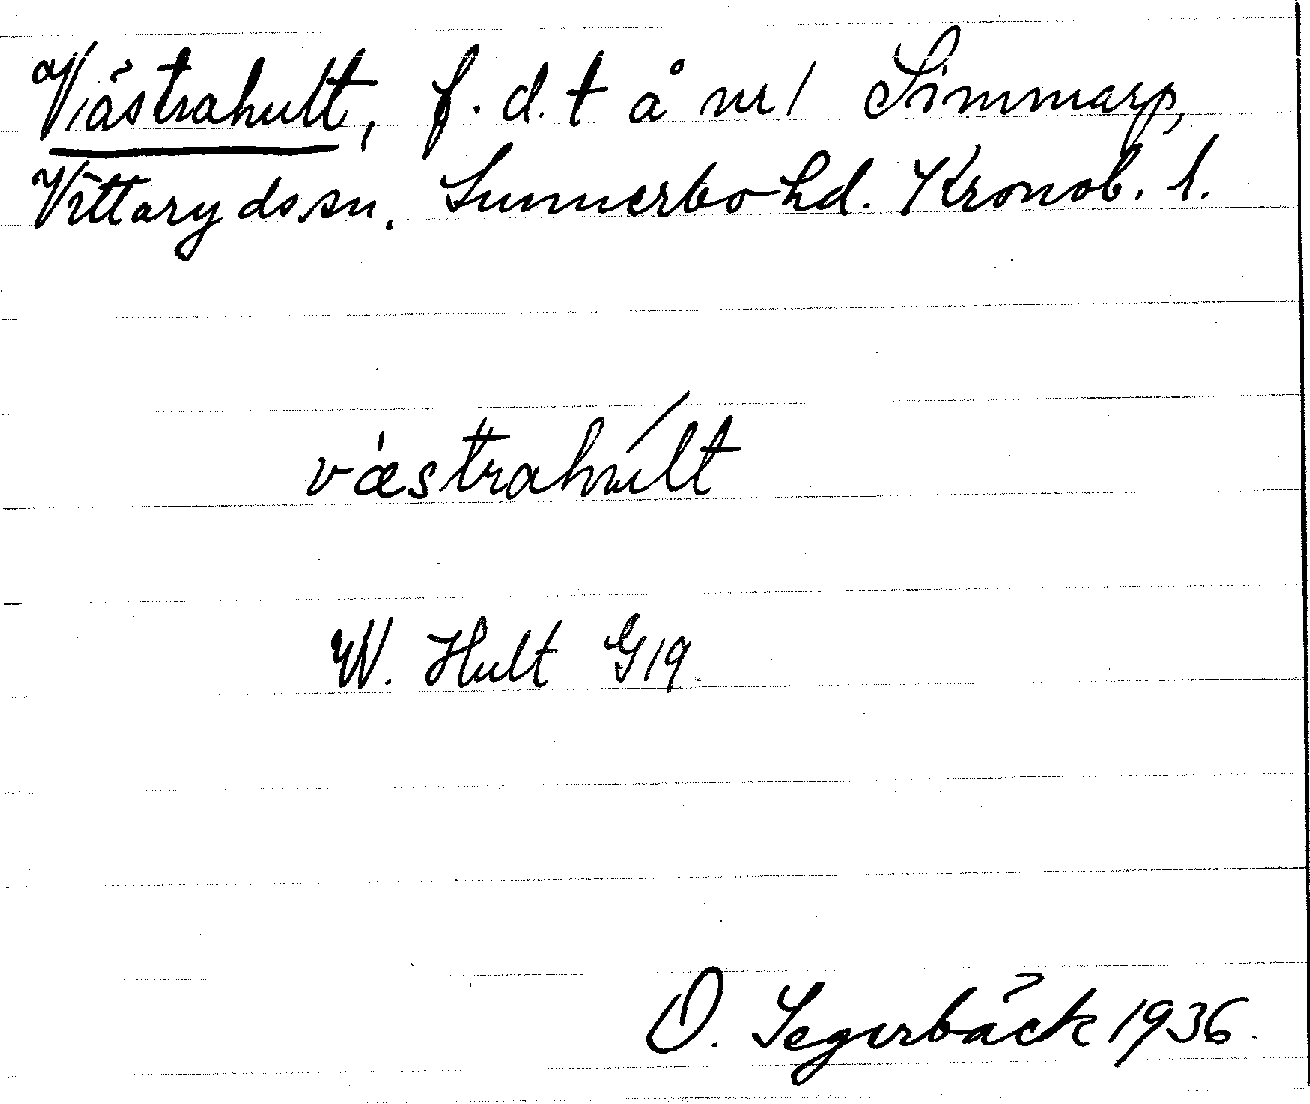 Västrahult, f. d. t å nr 1 Simmarp,
Vittaryds sn. Sunnerbo hd. Kronob. l.
væ̀strahúlt
W. Hult G 19.
O. Segerbäck 1936.